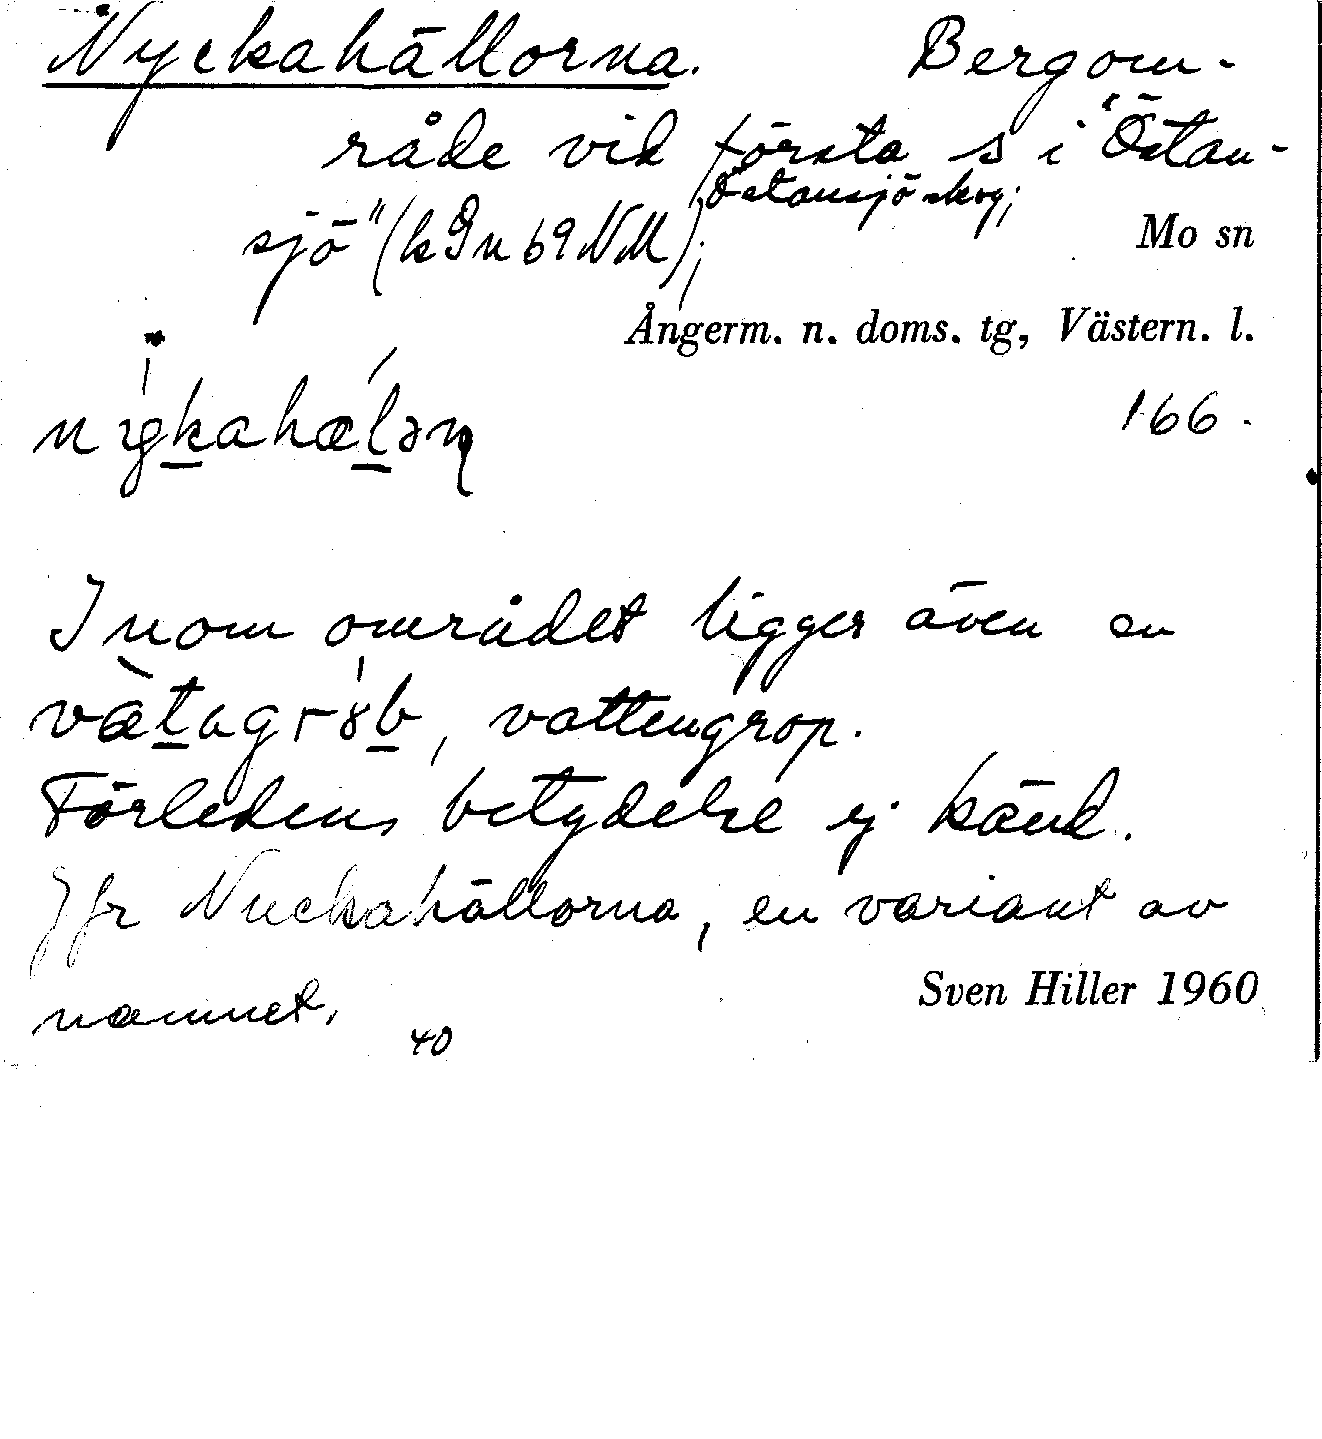 Nyckahällorna. Bergom-
råde vid första s i "Östan-
sjö" (kGn 69 NM); Östansjö skog;
Mo sn
Ångerm. n. doms. tg, Västern. l.
166.
Inom området ligger även en
vætagrȣb, vattengrop.
Förledens betydelse ej känd.
Jfr Nuckahällorna, en variant av
namnet.
Sven Hiller 1960
40